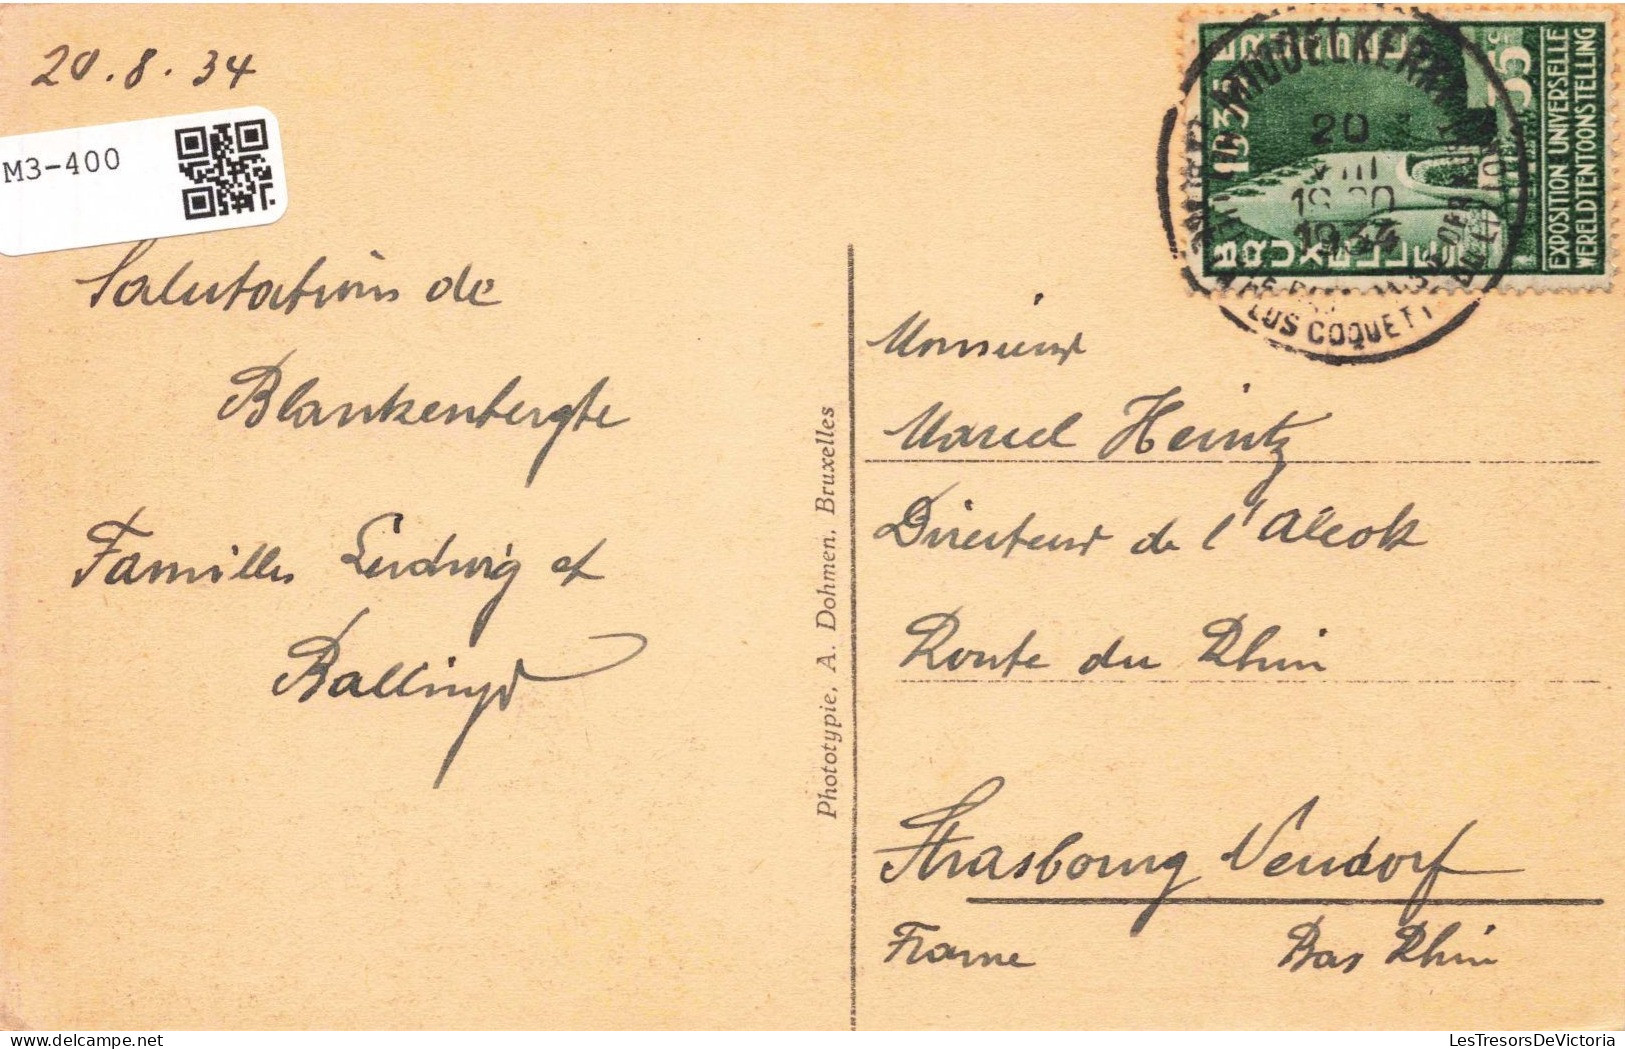 20.8.34
M3-400
Salutations de
Blankenbergte
Familles Ludwig et
Phototypie, A. Dohmen, Bruxelles
1935
BRUXELLES
35c
EXPOSITION UNIVERSELLE
WERELDTENTOONSTELLING
MIDDELKERKE
20
VIII
1934
PLUS COQUET
Monsieur
Marcel Heintz
Directeur de l'Alcok
Route du Rhin
Strasbourg Neudorf
France Bas Rhin
LesTresorsDeVictoria